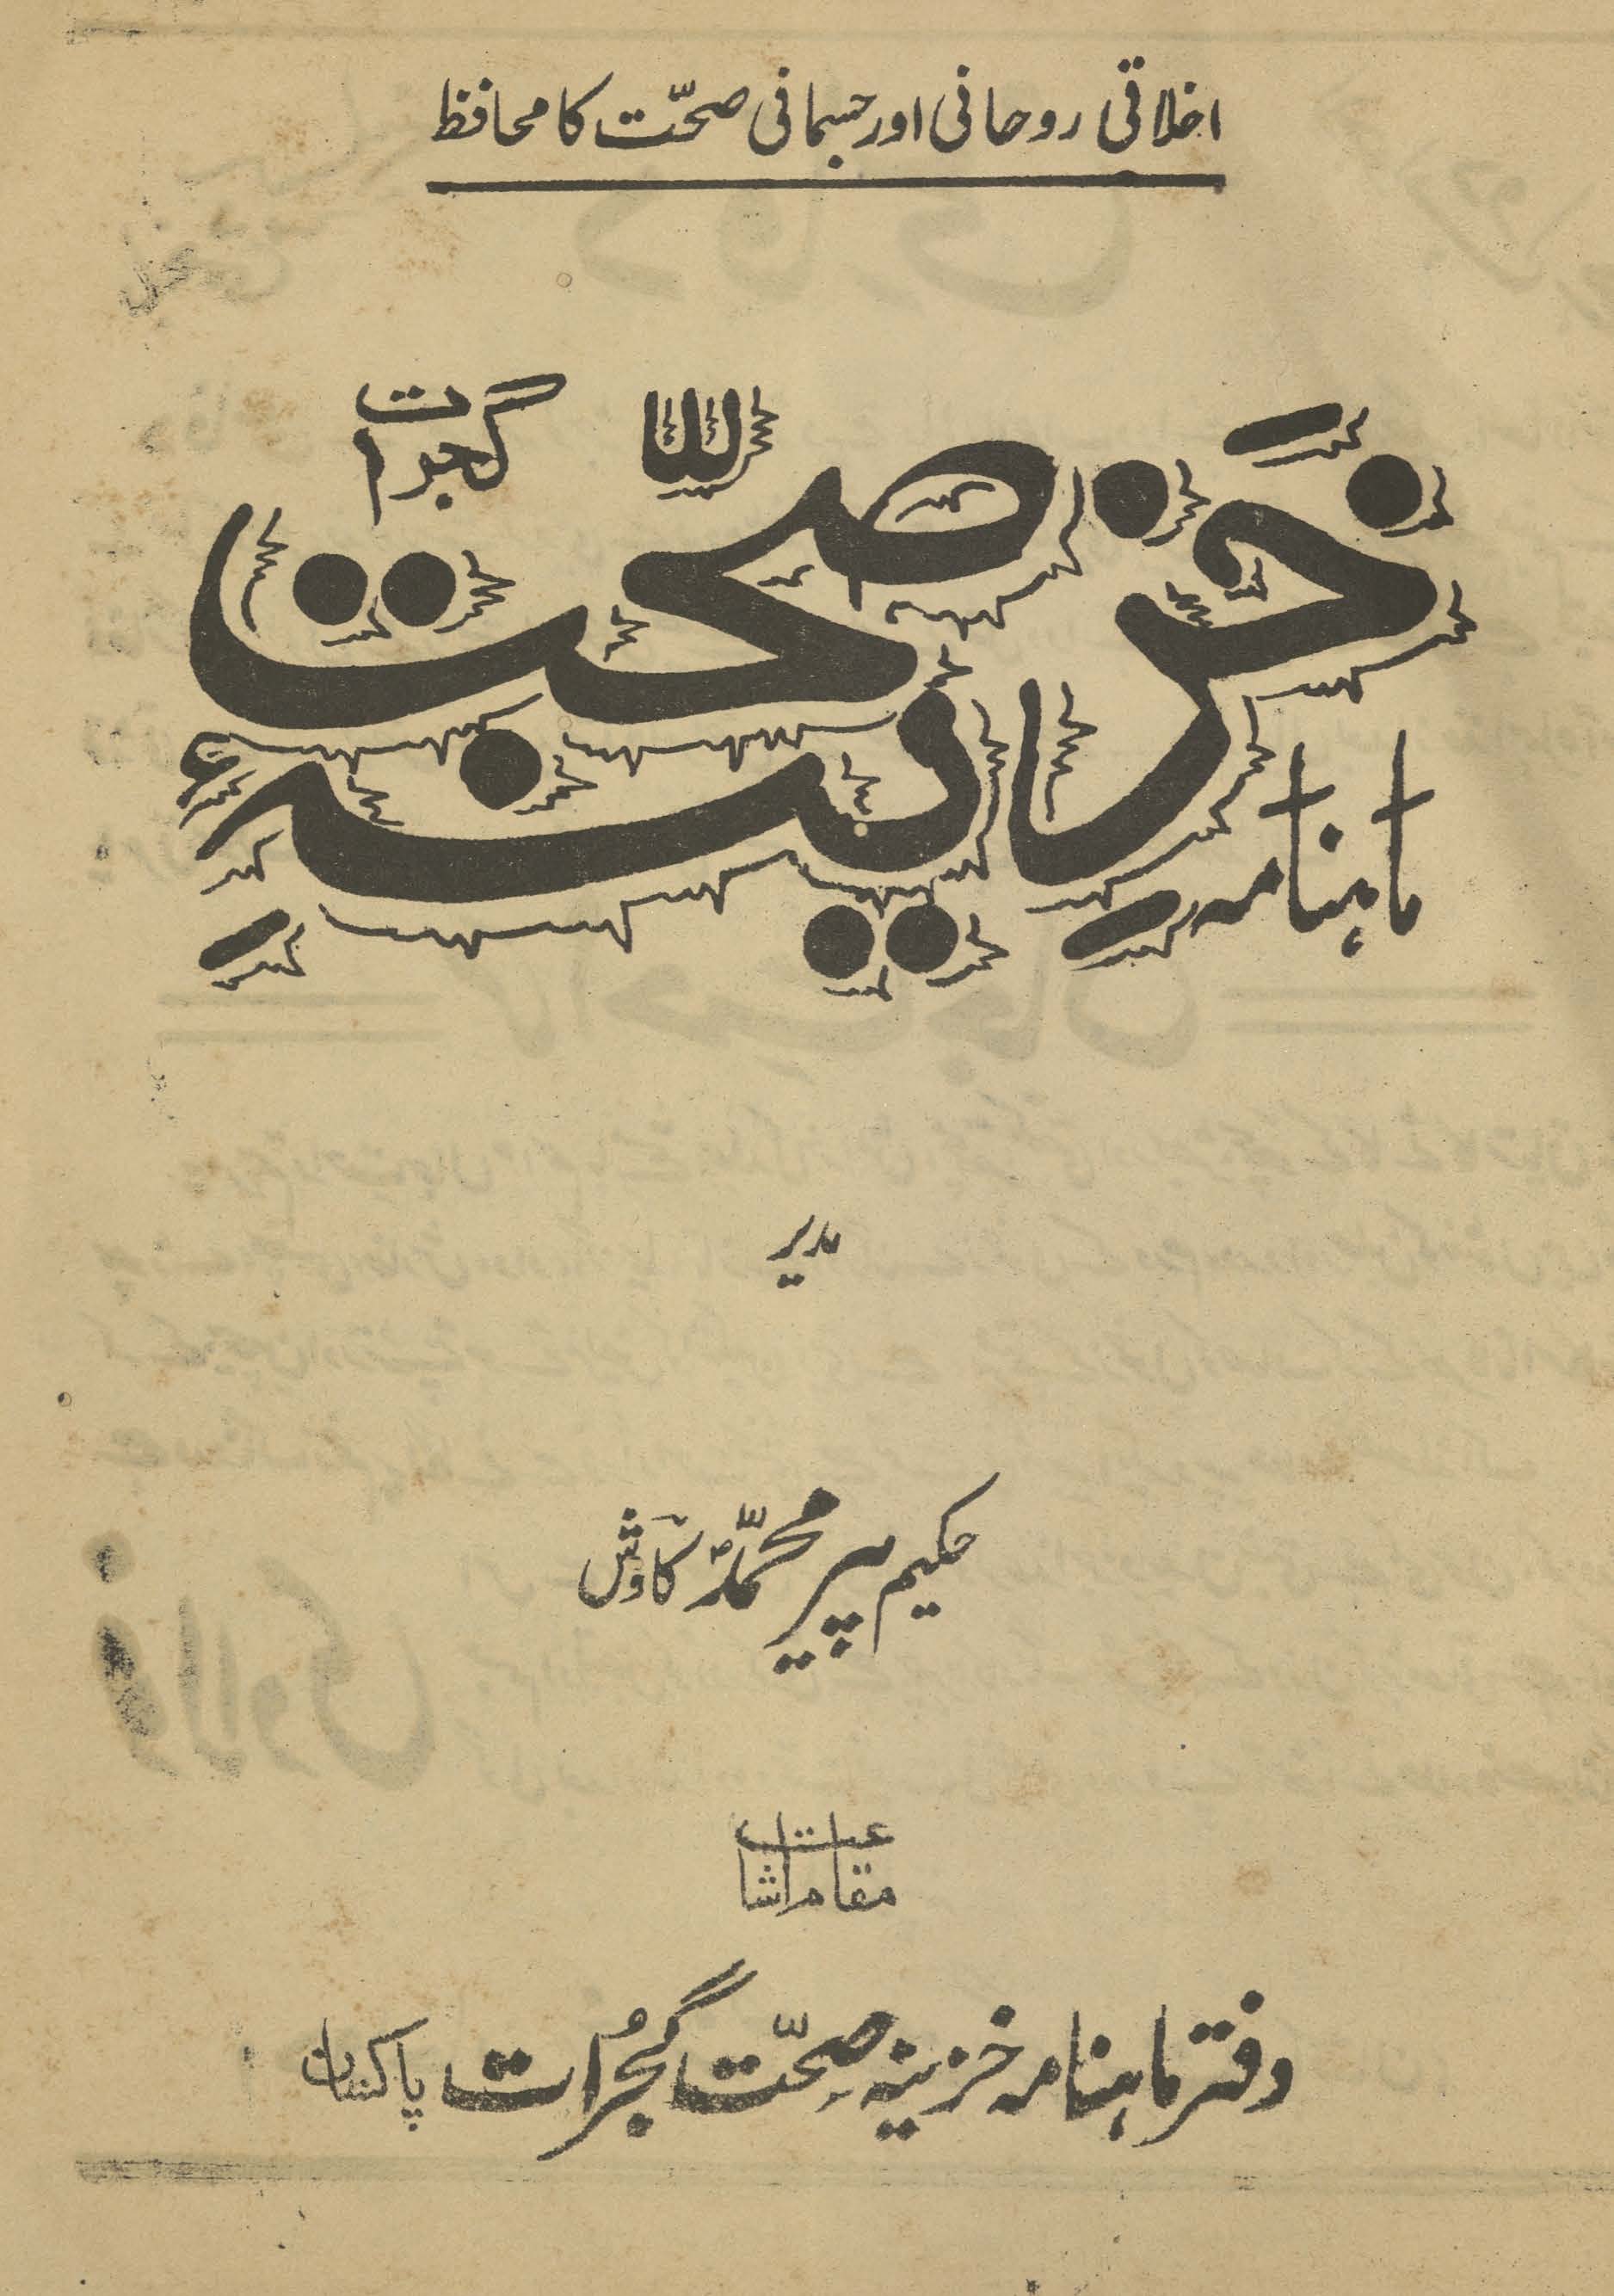 اخلاقی روحانی اور جسمانی صحّت کا محافظ
ماہنامہ
خزینہ صحّت
گجرات
مدیر
حکیم پیر محمّد کاوش
مقام اشاعت
دفتر ماہنامہ خزینہ صحّت گجرات پاکستان